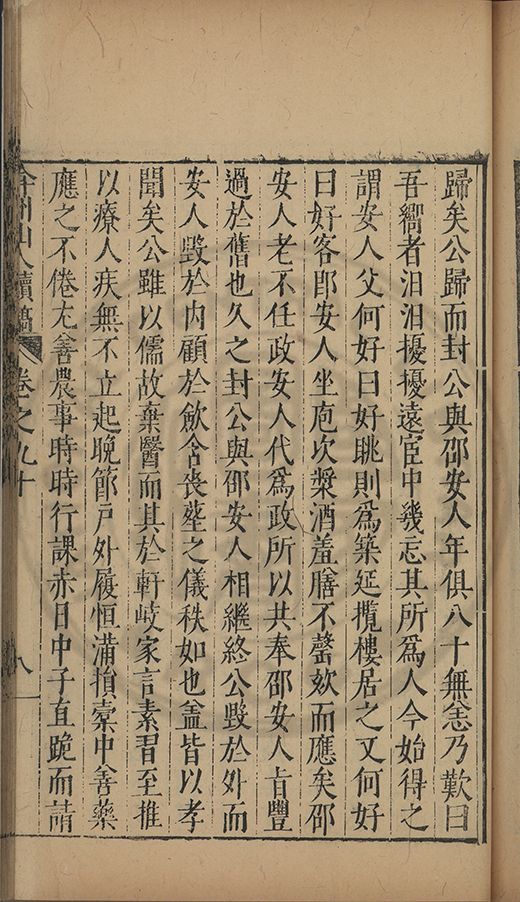 歸矣公歸而封公與邵安人年俱八十無恙乃歎曰
吾嚮者汨汨擾擾遠宦中幾忘其所爲人今始得之
謂安人父何好曰好眺則爲築延攬樓居之又何好
曰好客即安人坐庖次漿酒羞膳不罄欬而應矣邵
安人老不任政安人代爲政所以共奉邵安人旨豐
過於舊也久之封公與邵安人相繼終公毀於外而
安人毀於内顧於飲含喪塟之儀秩如也盖皆以孝
聞矣公雖以儒故棄醫而其於軒岐家言素習至推
以療人疾無不立起晚節戸外履恒滿損橐中善藥
應之不倦尤善農事時時行課赤日中子直跪而請
弇州山人續稿
卷之九十
八